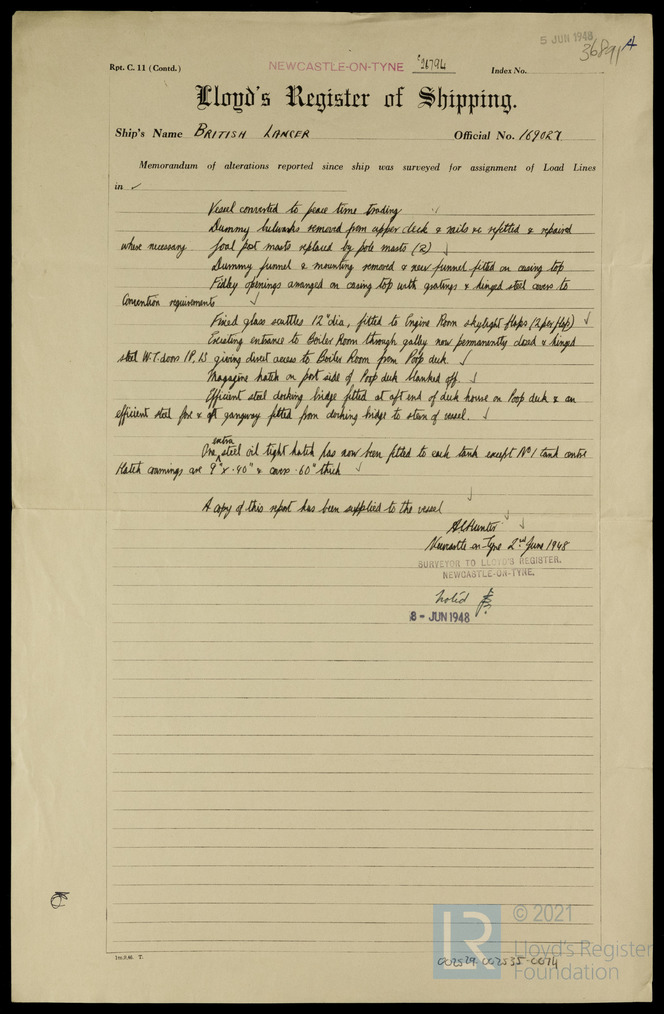 5 JUN 1948
36891 A
Rpt. C. 11 (Contd.) NEWCASTLE-ON-TYNE 96794 Index No.
Lloyd's Register of Shipping.
Ship's Name BRITISH LANCER Official No. 169027
Memorandum of alterations reported since ship was surveyed for assignment of Load Lines
in
Vessel converted to peace time trading
Dummy bulwarks removed from upper deck & rails re refitted & repaired
where necessary foal post masts replaced by pole masts (2)
Dummy funnel & mounting removed & new funnel fitted on casing top
Fidley openings arranged on casing top with gratings & hinged steel covers to
Convention requirements
Fixed glass scuttles 12" dia, fitted to Engine Room skylight flaps (2 per flap)
Existing entrance to Boiler Room through galley now permanently closed & hinged
steel W.T. doors 1P, 1S giving direct access to Boiler Room from Poop deck
Magazine hatch on port side of Poop deck blanked off.
Efficient steel docking bridge fitted at aft end of deck house on Poop deck & an
efficient steel fore & aft gangway fitted from docking bridge to stern of vessel.
extra
One steel oil tight hatch has now been fitted to each tank except No 1 tank centre
Hatch coamings are 9" x .40" & covers .60" thick
A copy of this report has been supplied to the vessel
A C Hunter
Newcastle on Tyne 2nd June 1948
SURVEYOR TO LLOYD'S REGISTER.
NEWCASTLE-ON-TYNE.
Noted
8 - JUN 1948
© 2021
Lloyd's Register
Foundation
1m.9,46. T.
002529-002535-0074